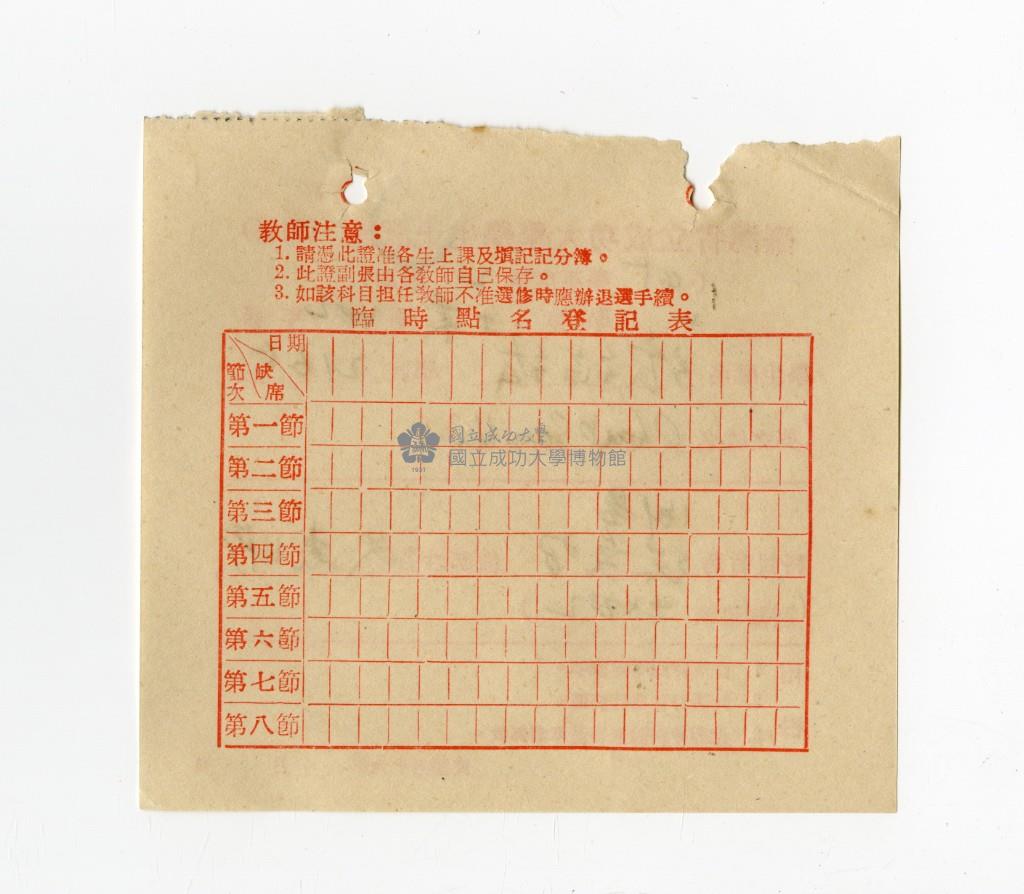 教師注意：
1. 請憑此證准各生上課及填記記分簿。
2. 此證副張由各教師自已保存。
3. 如該科目担任教師不准選修時應辦退選手續。
臨時點名登記表
日期
缺席
節次
第一節
第二節
第三節
第四節
第五節
第六節
第七節
第八節
國立成功大學
國立成功大學博物館
1931